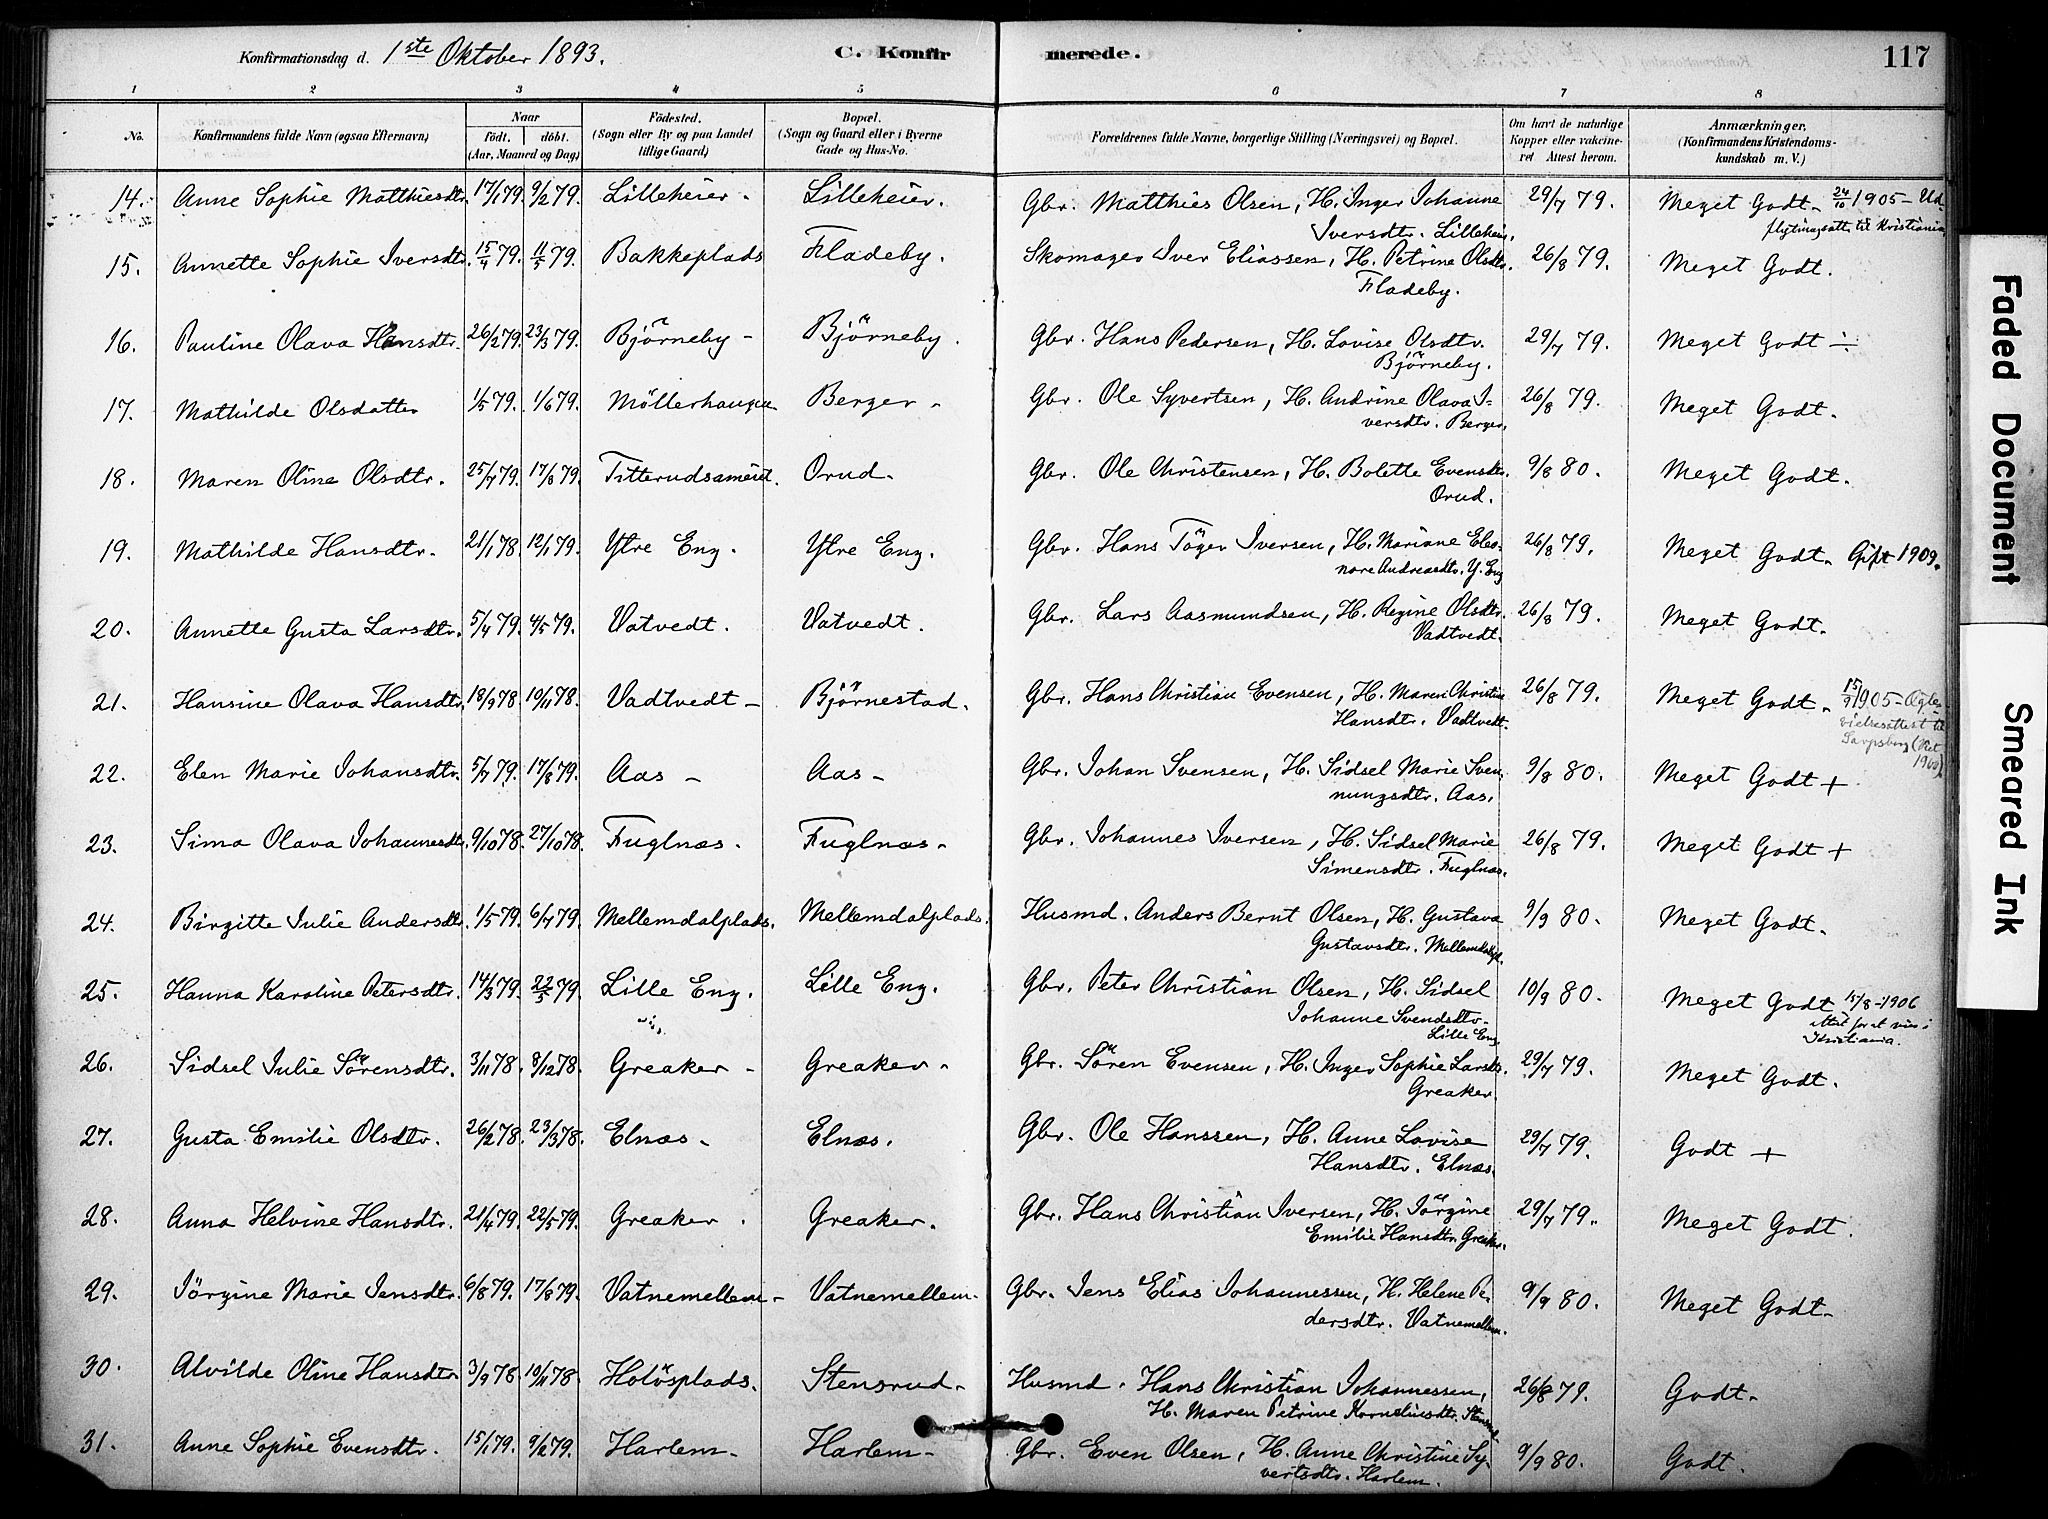 Konfirmationsdag d. 1ste Oktober 1893. C. Konfirmerede. 117
1 2 3 4 5 6 7 8
No. Konfirmandens fulde Navn (ogsaa Efternavn) Naar født, døbt. (Aar, Maaned og Dag) Fødested. (Sogn eller By og paa Landet tillige Gaard) Bopæl. (Sogn og Gaard eller i Byerne Gade og Hus-No. Forældrenes fulde Navne, borgerlige Stilling (Næringsvei) og Bopæl. Om havt de naturlige Kopper eller vakcineret Attest herom. Anmærkninger, (Konfirmandens Kristendomskundskab m. V.)
14. Anne Sophie Matthiesdtr. 17/1 79. 9/2 79. Lilleheier. Lilleheier. Gbr. Matthies Olsen, H. Inger Johanne 29/7 79. Meget Godt. 24/10 1905 - Ud-
Iversdtr. Lilleheier. flytningsatt. til Kristiania
15. Annette Sophie Iversdtr. 15/4 79. 11/5 79. Bakkeplads Fladeby. Skomager Iver Eliassen, H. Petrine Olsdtr. 26/8 79. Meget Godt.
Fladeby.
16. Pauline Olava Hansdtr. 26/2 79. 23/3 79. Björneby - Björneby. Gbr. Hans Pedersen, H. Lovise Olsdtr. 29/7 79. Meget Godt ÷
Björneby.
17. Mathilde Olsdatter 1/5 79. 1/6 79. Möllerhaugen Berger - Gbr. Ole Syvertsen, H. Andrine Olava I- 26/8 79. Meget Godt.
versdtr. Berger.
18. Maren Oline Olsdtr. 25/7 79. 17/8 79. Titterudsameiet. Orud. Gbr. Ole Christensen, H. Bolette Evensdtr. 9/8 80. Meget Godt.
Orud.
19. Mathilde Hansdtr. 21/1 78. 12/1 79. Ytre Eng. Ytre Eng. Gbr. Hans Töger Iversen, H. Mariane Eleo- 26/8 79. Meget Godt. Gift 1909.
nore Andreasdtr. Y. Eng
20. Annette Gusta Larsdtr. 5/4 79. 4/5 79. Vatvedt. Vatvedt. Gbr. Lars Aasmundsen, H. Regine Olsdtr. 26/8 79. Meget Godt.
Vadtvedt.
21. Hansine Olava Hansdtr. 18/9 78. 10/11 78. Vadtvedt - Björnestad. Gbr. Hans Christian Evensen, H. Maren Christine 26/8 79. Meget Godt. 15/9 1905 - Ægte-
Hansdt. Vadtvedt. vielsesattest til
Sarpsborg
22. Elen Marie Johansdtr. 5/7 79. 17/8 79. Aas - Aas - Gbr. Johan Svensen, H. Sidsel Marie Sven- 9/8 80. Meget Godt +
nungsdtr. Aas.
23. Sima Olava Johannesdtr. 9/10 78. 27/10 78. Fuglnæs. Fuglnæs - Gbr. Johannes Iversen, H. Sidsel Marie 26/8 79. Meget Godt +
Simensdtr. Fuglnæs.
24. Birgitte Julie Andersdtr. 1/5 79. 6/7 79. Mellemdalplads. Mellemdalplads. Husmd. Anders Bernt Olsen, H. Gustava 9/9 80. Meget Godt.
Gustavsdtr. Mellemdalpl.
25. Hanna Karoline Petersdtr. 14/3 79. 22/5 79. Lille Eng. Lille Eng. Gbr. Peter Christian Olsen, H. Sidsel 10/9 80. Meget Godt 15/8 - 1906
Johanne Svendsdtr. Attest for at vies i
Lille Eng Kristiania.
26. Sidsel Julie Sörensdtr. 3/11 78. 8/12 78. Greaker - Greaker - Gbr. Sören Evensen, H. Inger Sophie Larsdtr. 29/7 79. Meget Godt.
Greaker.
27. Gusta Emilie Olsdtr. 26/2 78. 23/3 78. Elnæs - Elnæs. Gbr. Ole Hanssen, H. Anne Lovise 29/7 79. Godt +
Hansdtr. Elnæs.
28. Anna Helvine Hansdtr. 21/4 79. 22/5 79. Greaker. Greaker. Gbr. Hans Christian Iversen, H. Jörgine 29/7 79. Meget Godt.
Emilie Hansdtr. Greaker.
29. Jörgine Marie Jensdtr. 6/8 79. 17/8 79. Vatnemellem - Vatnemellem. Gbr. Jens Elias Johannessen, H. Helene Pe- 9/9 80. Meget Godt.
dersdtr. Vatnemellem.
30. Alvilde Oline Hansdtr. 3/9 78 10/11 78 Holösplads. Stensrud - Husmd. Hans Christian Johannessen, 26/8 79. Godt.
H. Maren Petrine Korneliusdtr. Stensrud
31. Anne Sophie Evensdtr. 15/1 79. 9/2 79. Harlem - Harlem - Gbr. Even Olsen, H. Anne Christine Sy- 9/9 80. Godt.
vertsdtr. Harlem.
Faded Document
Smeared Ink